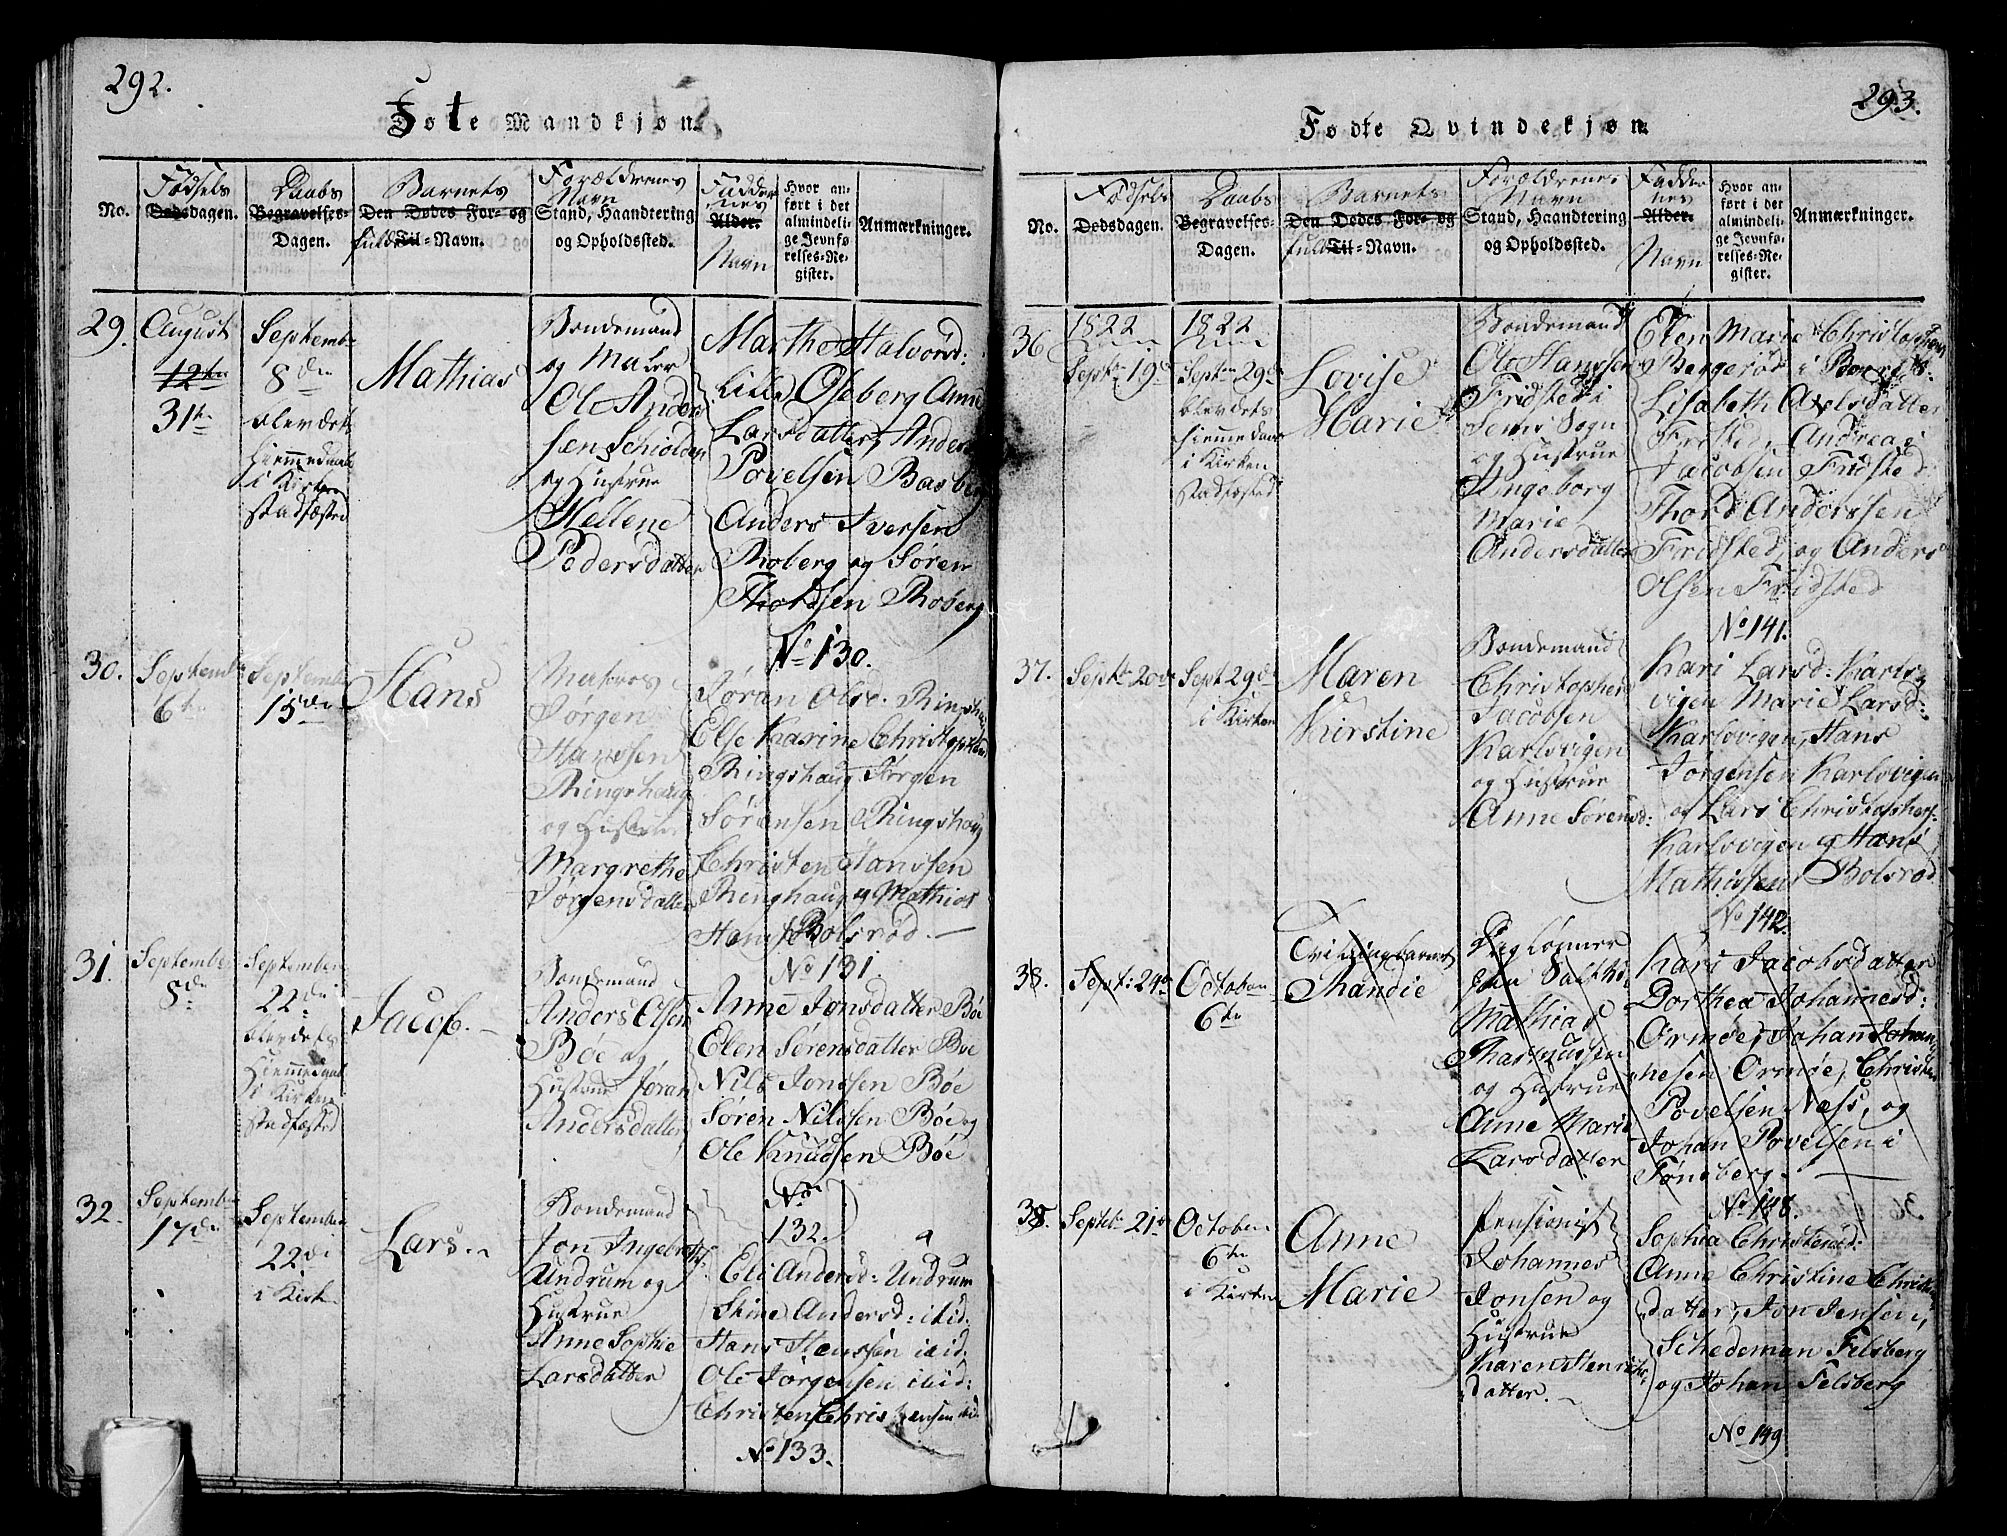 292.
Føte Mandkjøn.
No.
Fødsels
Dødsdagen.
Daabs
Begravelses-
Dagen.
Barnets
Den Dødes For- og
fulde Til-Navn.
Forældrenes
Navn
Stand, Haandtering
og Opholdssted.
Fadder
nes
Alder.
Navn
Hvor an-
ført i det
almindeli-
ge Jevnfø-
relses-Re-
gister.
Anmærkninger.
29.
August
12te
31te
Septemb.
8de
blev dets
Hiemmedaab
i Kirken
stadfæsted
Mathias
Bondemand
og Maler
Ole Ander
sen Schiolden
og Hustrue
Hellene
Pedersdatter
Marthe Halvorsd:
Lille Oseberg Anne
Larsdatter, Anders
Povelsen Basberg
Anders Iversen
Roberg og Søren
Thordsen Roberg
No 130.
30.
Septemb:
6te
Septemb:
15de
Hans
Matros
Jørgen
Hanssen
Ringshaug
og Hustrue
Margrethe
Jørgensdatter
Jøran Olsd. Ringshaug
Else Karine Christophersd
Ringshaug Jørgen
Sørensen Ringshaug
Christen Hanssen
Ringshaug og Mathias
Hanssen Bolsrød. —
No 131.
31.
September
8de
September
22de
blev dets
Hiemmedaab
i Kirken
stadfæsted
Jacob. -
Bondemand
Anders Olsen
Bøe og
Hustrue Jøran
Andersdatter
Anne Jonsdatter Bøe
Elen Sørensdatter Bøe
Nils Jonssen Bøe
Søren Nilssen Bøe og
Ole Knudsen Bøe
No
132.
32.
Septemb
17de
September
22de
i Kirk
Lars. -
Bondemand
Jon Ingebretss.
Undrum og
Hustrue
Anne Sophie
Larsdatter
Eli Andersd: Undrum
Stine Andersd: ibid.
Hans Hanssen ibid.
Ole Jørgensen ibid:
Christen Christensen ibid.
No 133.
293.
Fødte Qvindekjøn
No.
Fødsels
Dødsdagen.
Daabs
Begravelses-
Dagen.
Barnets
Den Dødes For- og
fulde Til-Navn.
Forældrenes
Navn
Stand, Haandtering
og Opholdssted.
Fadder
nes
Alder.
Navn
Hvor an-
ført i det
almindeli-
ge Jevnfø-
relses-Re-
gister.
Anmærkninger.
36
1822
Septbr 19de
1822
Septbr 29de
blev dets
Hiemmedaab
i Kirken
stadfæsted
Lovise
Marie
Bondemand
Ole Hanssen
Fridsted i
Sems Sogn
og Hustrue
Ingeborg
Marie
Andersdatter
Elen Marie Christophers
Bergerød i Borre S:
Lisabeth Axelsdatter
Fristed, Andreas
Jacobsen Fridsted
Thord Anderssen
Fridsted, og Anders
Olsen Fridsted
No 141.
37.
Septbr 20de
Sept 29de
i Kirken
Maren
Kirstine
Bondemand
Christopher
Jacobsen
Karlsvigen
og Hustrue
Anne Sørensd:
Kari Larsd: Karls
vigen Marie Larsd:
Karlsvigen, Hans
Jørgensen Karlsvigen
og Lars Christophers.
Karlsvigen og Hans
Mathissens Bolsrød
No 142.
38.
Sept: 24de
October
6te
Tvillingbarnet
Thandie
Daglønner
Mathias
Rasmussen
og Hustrue
Anne Marie
Larsdatter
Kari Jacobsdatter
Dorthea Johannesd:
Ormøe, Johan Johan
nesen Ormøe, Christen
Povelsen Næss, og
Johan Povelsen i
Tønsberg. —
No 148.
38.
Septbr 21de
October
6te
i Kirken
Anne
Marie
Pensionist
Johannes
Jonsen og
Hustrue
Karen Henriks
datter. -
Sophia Christensd:
Anne Christine Christens
datter, Jon Jensen i,
Schedeman Felsberg
og Johan Felsberg
No 149